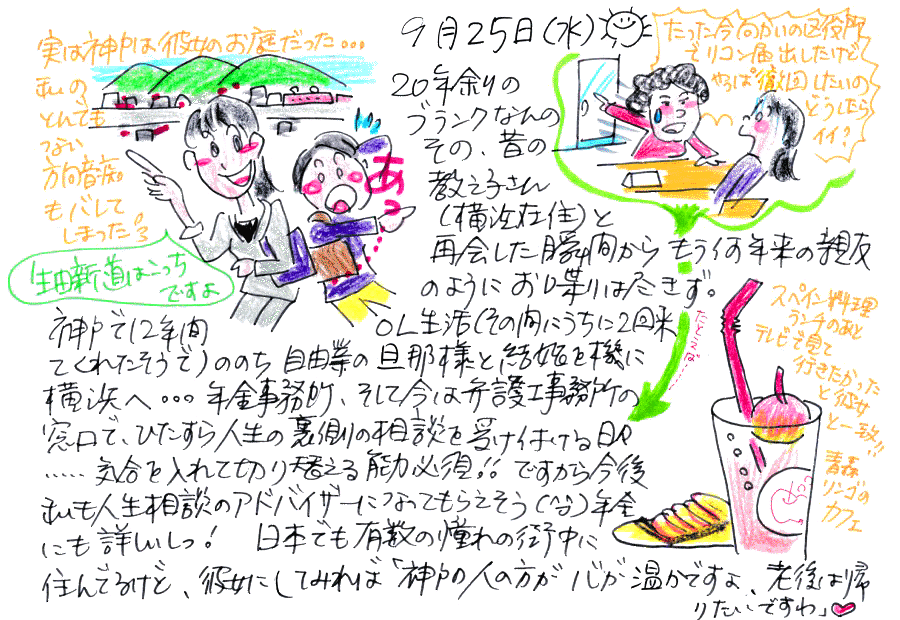 9月25日(水)
実は神戸は彼女のお庭だった…
私の
とんでも
ない
方向音痴
もバレして
しまった。
生田新道はこっち
ですよ
あっ
たった今向かいの区役所
でリコン届出したけど
やっぱ撤回したいの
どうしたら
イイ?
20年余りの
ブランクなんの
その、昔の
教え子さん
(横浜在住)と
再会した瞬間から もう何年来の親友
のように お喋りは尽きず。
神戸で12年間 OL生活(その間にうちに2回来
てくれたそうで)ののち 自由業の旦那様と結婚を機に
横浜へ… 年金事務所、そして今は弁護士事務所の
窓口で、ひたすら人生の裏側の相談を受け付ける日々
……気合を入れて切り替える能力必須!! ですから今後
私も人生相談のアドバイザーになってもらえそう(^^)年金
にも詳しいしっ! 日本でも有数の憧れの街中に
住んでるけど、彼女にしてみれば「神戸の人の方が心が温かですよ、老後は帰
りたいですわ」
たとえば
スペイン料理
ランチのあと
テレビで見て
行きたかった
と彼女
と一致!!
青森
リンゴの
カフェ